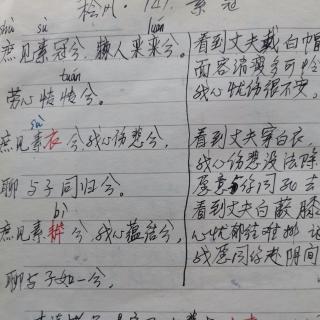 桧风·147.素冠
shù sù luán
庶见素冠兮,棘人栾栾兮。
tuán
劳心慱慱兮。
庶见素衣兮,我心伤悲兮,
聊与子同归兮。
bì
庶见素韠兮,我心蕴结兮,
聊与子如一兮。
看到丈夫戴白帽
面容清瘦多可怜
我心忧伤很不安,
看到丈夫穿白衣,
我心伤悲没法除
愿意与你同死去
看到丈夫白蔽膝
心忧郁结难排
我愿同你赴阴间